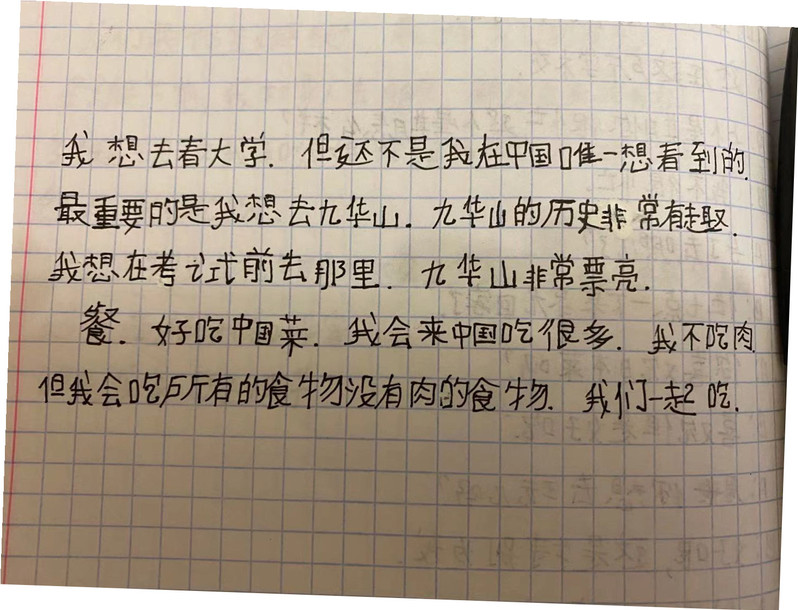 我想去看大学. 但这还不是我在中国唯一想看到的.
最重要的是我想去九华山. 九华山的历史非常有趣.
我想在考试前去那里. 九华山非常票亮.
餐. 好吃中国菜. 我会来中国吃很多. 我不吃肉
但我会吃所有的食物没有肉的食物. 我们一起吃.